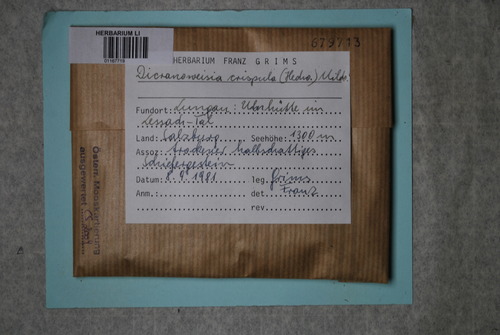 HERBARIUM LI
679713
HERBARIUM FRANZ GRIMS
Dicranoweisia crispula (Hedw.) Milde
Fundort: Lungau: im
Lessach-Tal
Land: Salzburg Seehöhe: 1300 m
Assoz.: kalkhaltiges
Schiefergestein
Datum: 8.9.1981 leg. Grims
Anm.: det. Franz
rev.
Österr. Mooskartierung
ausgewertet